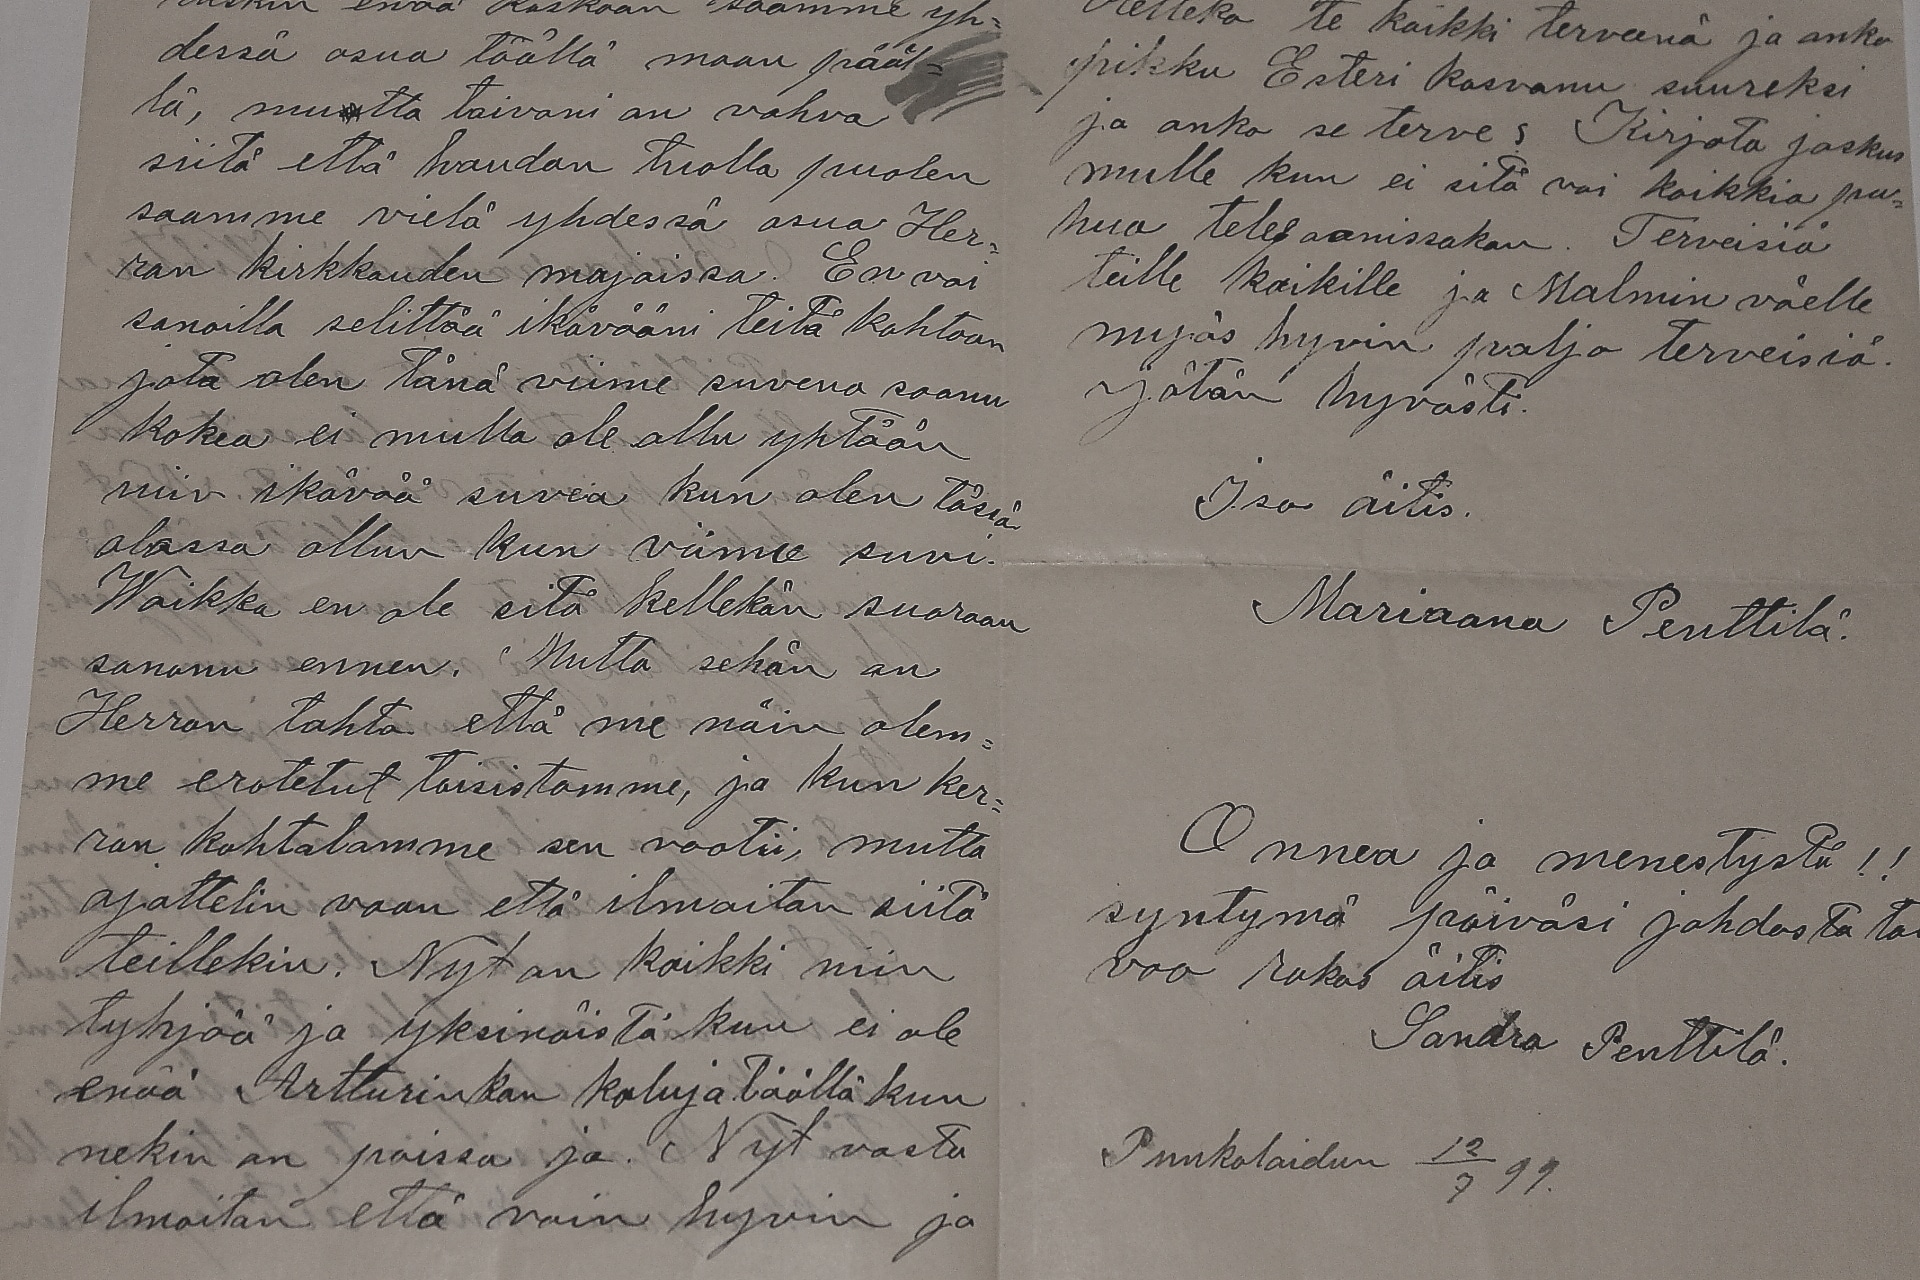 enää koskaan saamme yh=
dessä asua täällä maan pääl=
lä, mutta toivoni on vahva
siitä että haudan tuolla puolen
saamme vielä yhdessä asua Her=
ran kirkkauden majoissa. En voi
sanoilla selittää ikävääni teitä kohtaan
jota olen tänä viime suvena saanu
kokea ei mulla ole ollu yhtään
niin ikävää suvea kun olen tässä
olossa ollun kun viime suvi.
Waikka en ole sitä kellekän suoraan
sanonu ennen. Mutta sehän on
Herran tahto että me näin olem=
me erotetut toisistamme, ja kun ker=
ran kohtalomme sen vaatii, mutta
ajattelin vaan että ilmoitan siitä
teillekin. Nyt on kaikki niin
tyhjää ja yksinäistä kun ei ole
enää Artturinkan kaluja täällä kun
nekin on poissa jo. Nyt vasta
ilmoitan että voin hyvin ja
Oletteko te kaikki terveenä ja onko
pikku Esteri kasvanu suureksi
ja onko se terve? Kirjota joskus
mulle kun ei sitä voi kaikkia pu=
hua telefoonissakan. Terveisiä
teille kaikille ja Malmin väelle
myös hyvin paljo terveisiä.
Jätän hyvästi.
Iso äitis.
Mariaana Penttilä.
Onnea ja menestystä!!
syntymä päiväsi johdosta toi
voo rakas äitis
Sandra Penttilä.
Punkolaidun 12/7 99.